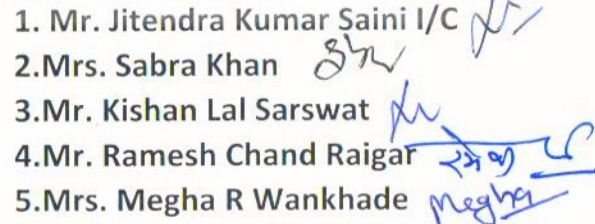 1. Mr. Jitendra Kumar Saini I/C
2.Mrs. Sabra Khan
3.Mr. Kishan Lal Sarswat
4.Mr. Ramesh Chand Raigar
5.Mrs. Megha R Wankhade Megha